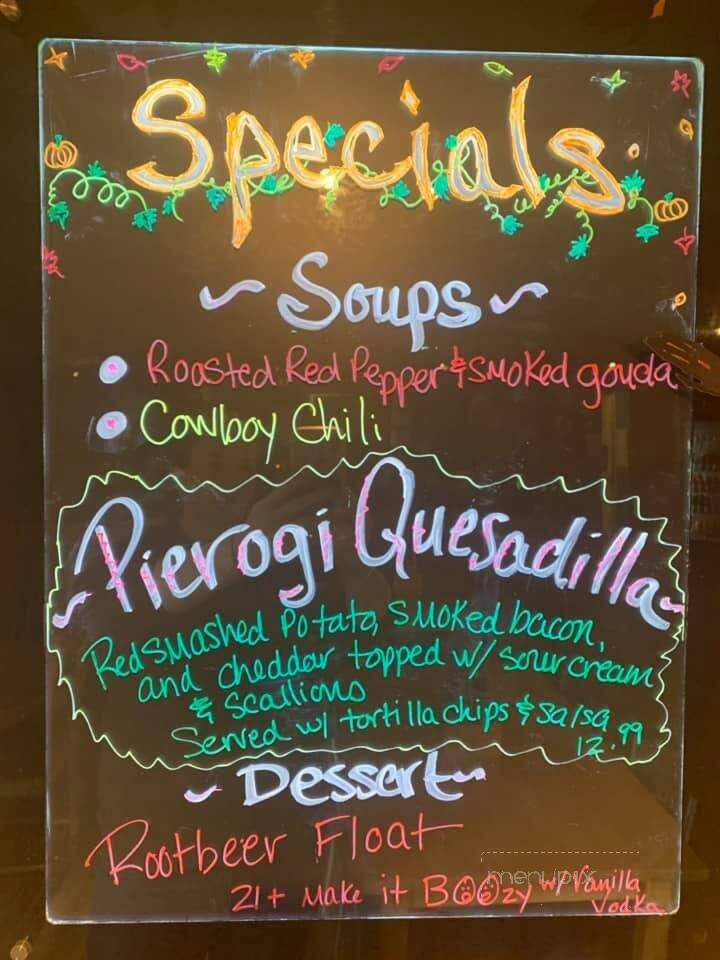 Specials
~ Soups ~
Roasted Red Pepper & smoked gouda
Cowboy Chili
~ Pierogi Quesadilla ~
Red smashed Potato, smoked bacon,
and cheddar topped w/ sour cream
& scallions
Served w/ tortilla chips & salsa
12.99
~ Dessert ~
Rootbeer Float
21+ Make it BOOzy w/ Vanilla
Vodka
menupix